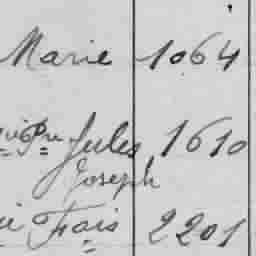 Marie 1064
Pre Jules 1610
Joseph
Fois 2201